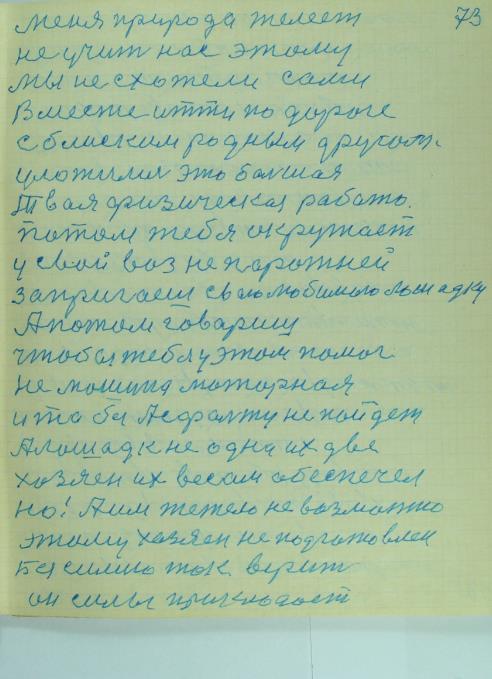 73
меня природа желеет
не учит нас этому
мы не схотели сами
Вместе итти по дороге
с блиским родным другом.
уложили это большая
Твая физическая работа.
потом тебя окружает
у свой воз не парожней
запригаеш свою любимою лошадку
А потом говариш
чтобы тебя у этом помог
не мошина моторная
и та бы Асфалту не пойдет
Алошадк не одна их две
хозяен их весам обеспечел
но! Аим тежело не возможно
этому хозяен не подготовлен
Бы силино так верит
он силы прикладает